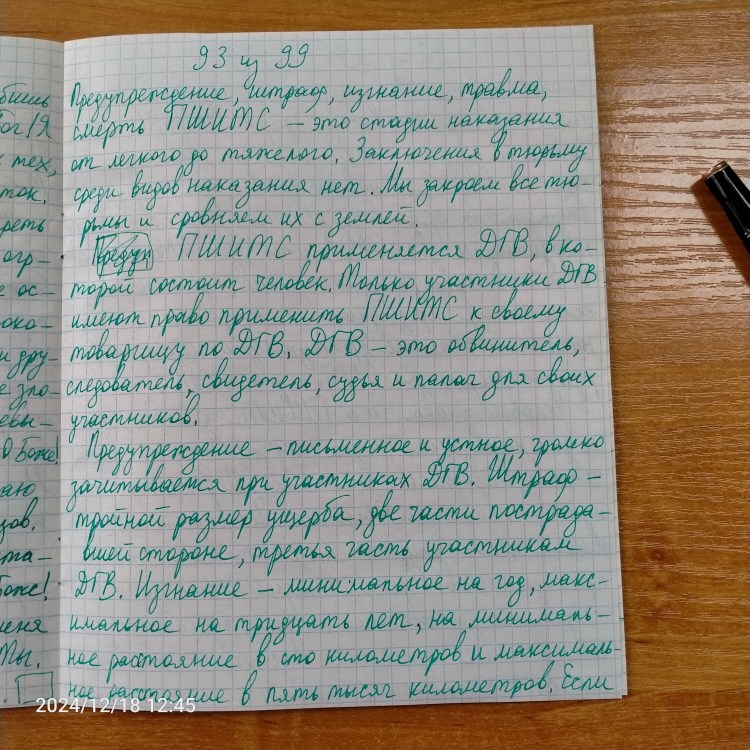 93 из 99
Предупреждение, штраф, изгнание, травма,
смерть ПШИТС – это стадии наказания
от легкого до тяжелого. Заключения в тюрьму
среди видов наказания нет. Мы закроем все тю-
рьмы и сровняем их с землей.
Предуп ПШИТС применяется ДГВ, в ко-
торой состоит человек. Только участники ДГВ
имеют право применить ПШИТС к своему
товарищу по ДГВ. ДГВ – это обвинитель,
следователь, свидетель, судья и палач для своих
участников.
Предупреждение – письменное и устное, громко
зачитывается при участниках ДГВ. Штраф –
тройной размер ущерба, две части пострада-
вшей стороне, третья часть участникам
ДГВ. Изгнание – минимальное на год, макс-
имальное на тридцать лет, на минималь-
ное расстояние в сто километров и максималь-
ное расстояние в пять тысяч километров. Если
бишь
Бог! Я
тех,
ток.
реть
огр-
е ос-
око-
и дру-
е зло-
евы-
О Боже!
аю
ов.
та-
Боже!
меня
Ты.
2024/12/18 12:45